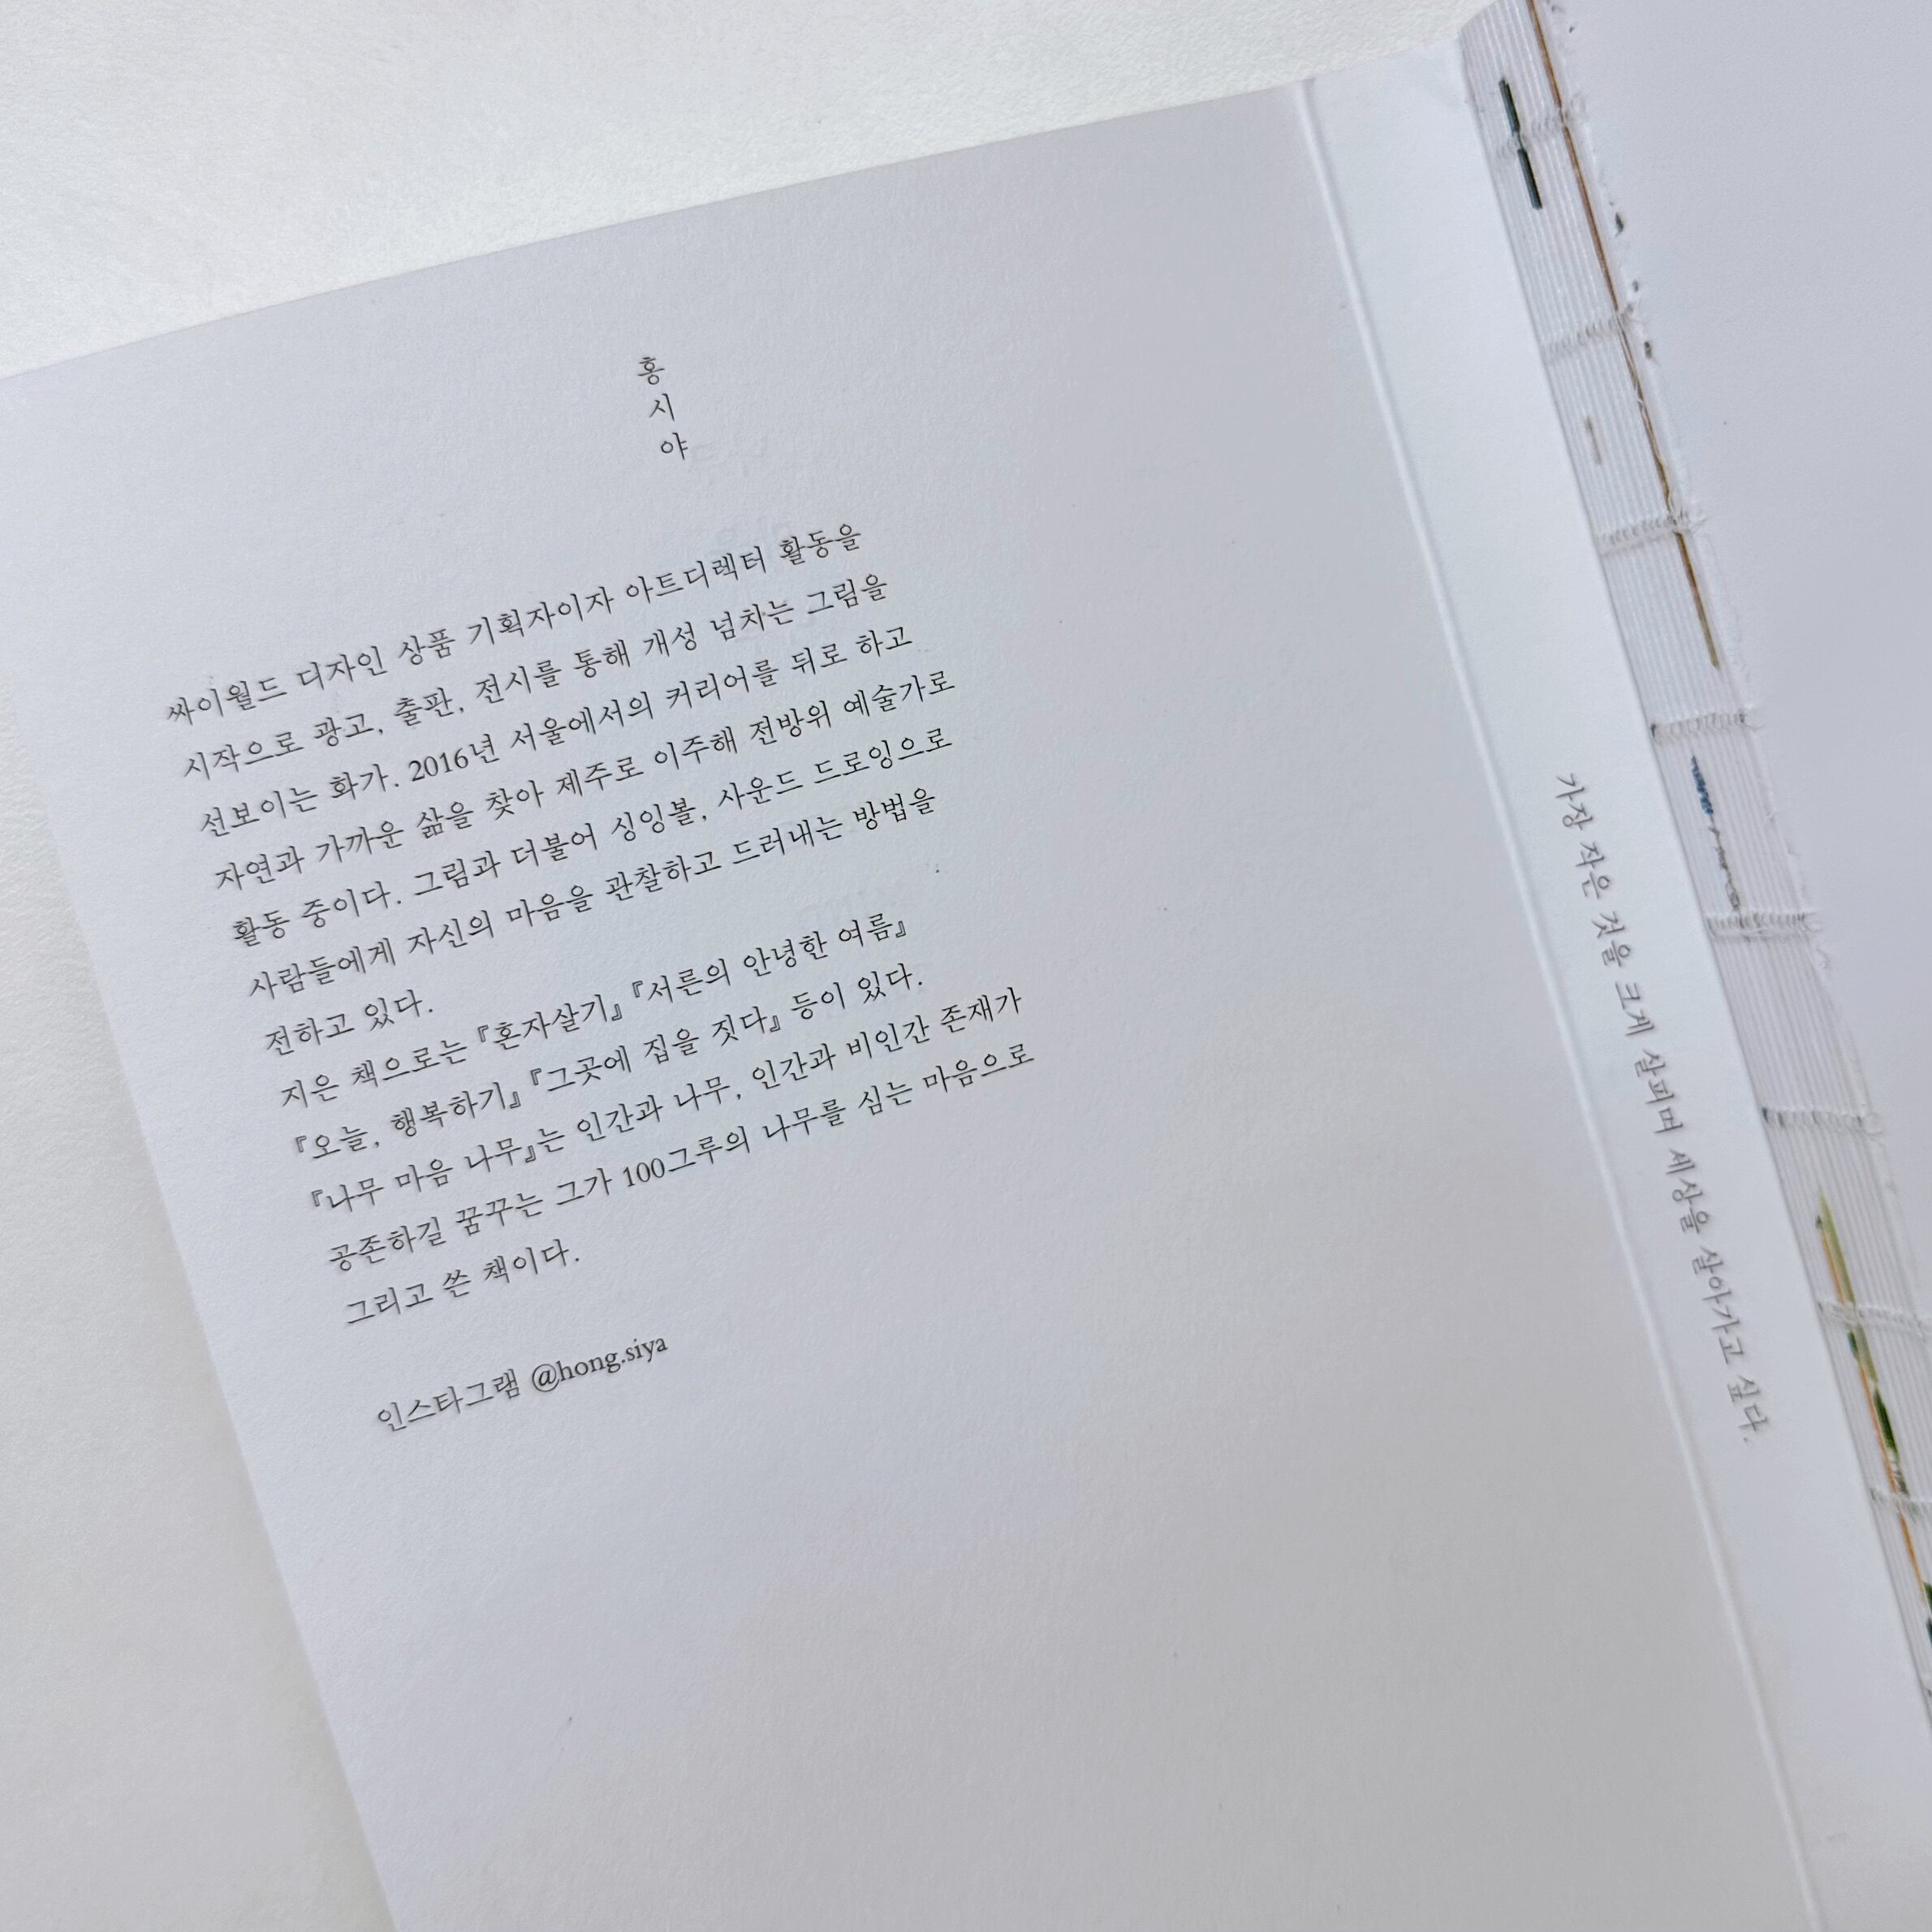 홍
시
야
싸이월드 디자인 상품 기획자이자 아트디렉터 활동을
시작으로 광고, 출판, 전시를 통해 개성 넘치는 그림을
선보이는 화가. 2016년 서울에서의 커리어를 뒤로 하고
자연과 가까운 삶을 찾아 제주로 이주해 전방위 예술가로
활동 중이다. 그림과 더불어 싱잉볼, 사운드 드로잉으로
사람들에게 자신의 마음을 관찰하고 드러내는 방법을
전하고 있다.
지은 책으로는 『혼자살기』 『서른의 안녕한 여름』
『오늘, 행복하기』 『그곳에 집을 짓다』 등이 있다.
『나무 마음 나무』는 인간과 나무, 인간과 비인간 존재가
공존하길 꿈꾸는 그가 100그루의 나무를 심는 마음으로
그리고 쓴 책이다.
인스타그램 @hong.siya
가장 작은 것을 크게 살피며 세상을 살아가고 싶다.